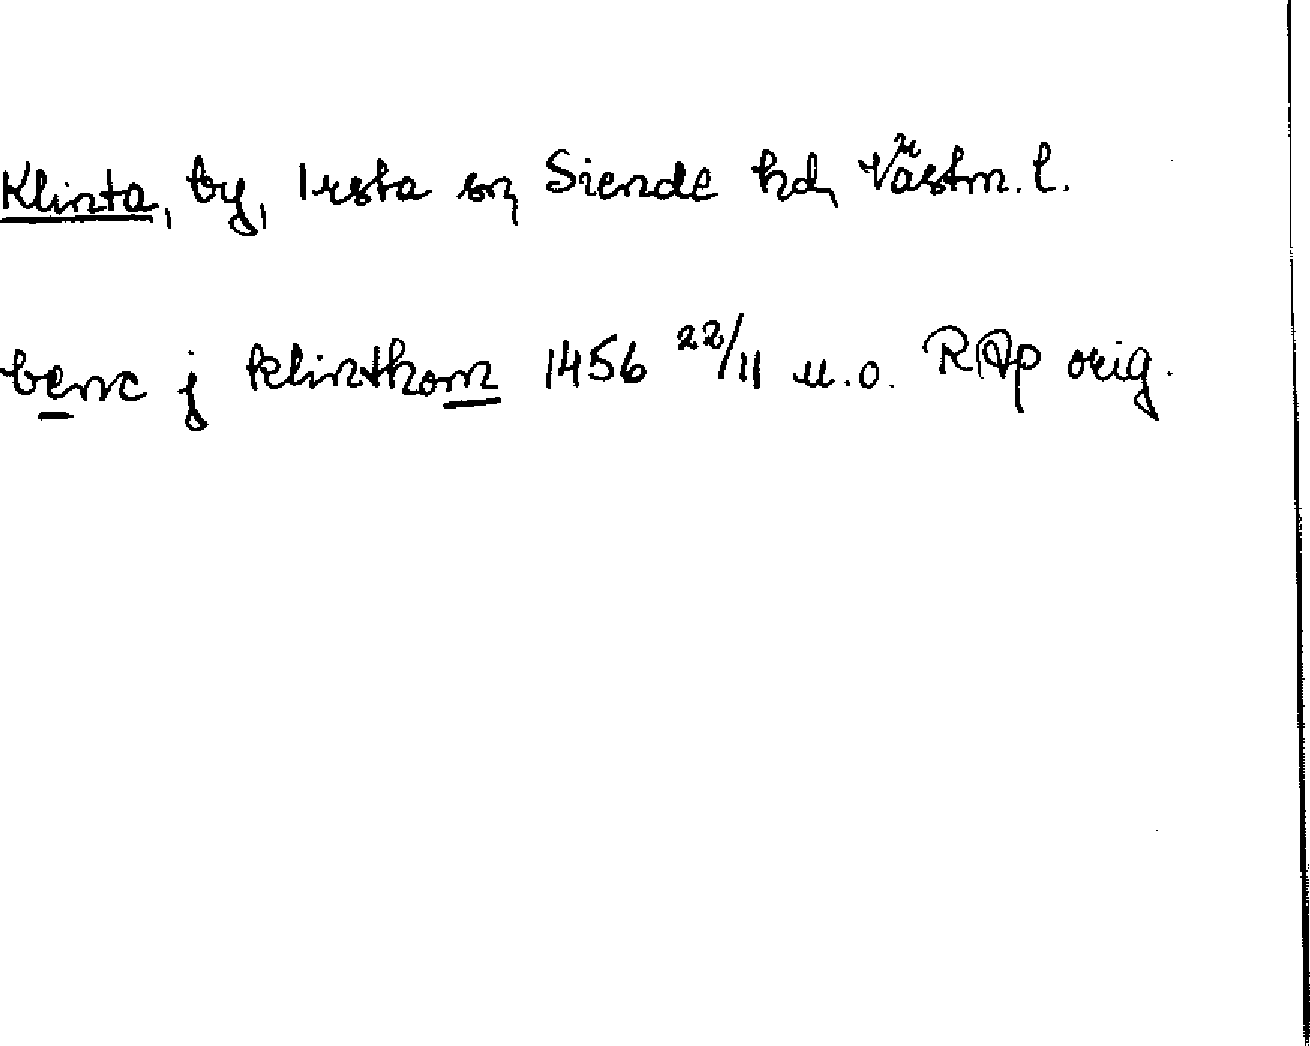 Klinta, by, Irsta sn, Siende hd, Västm. l.
benc j klinthom 1456 22/11 u.o. RAp orig.